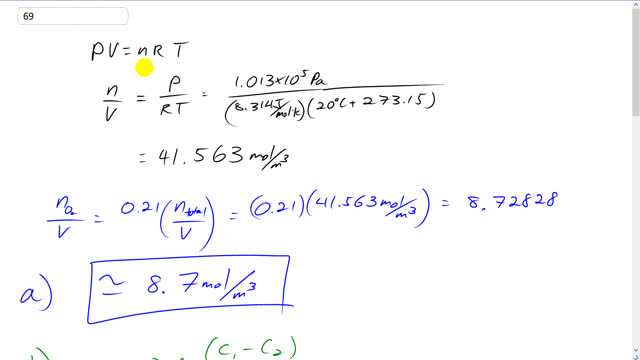 69
PV = nRT
n/V = P/RT = 1.013×10⁵ Pa / (8.314 J/mol·K)(20°C + 273.15)
= 41.563 mol/m³
n_O₂/V = 0.21 (n_total/V) = (0.21)(41.563 mol/m³) = 8.72828
a) ≃ 8.7 mol/m³
(C₁ − C₂)